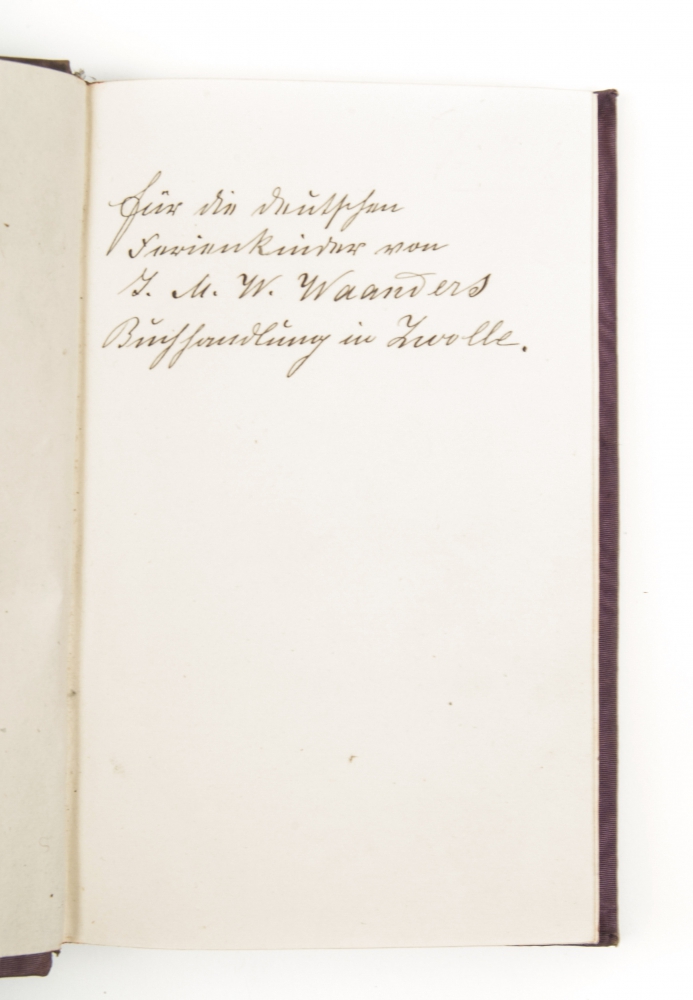 für die deutschen
Ferienkinder von
J. M. W. Waanders
Buchhandlung in Zwolle.